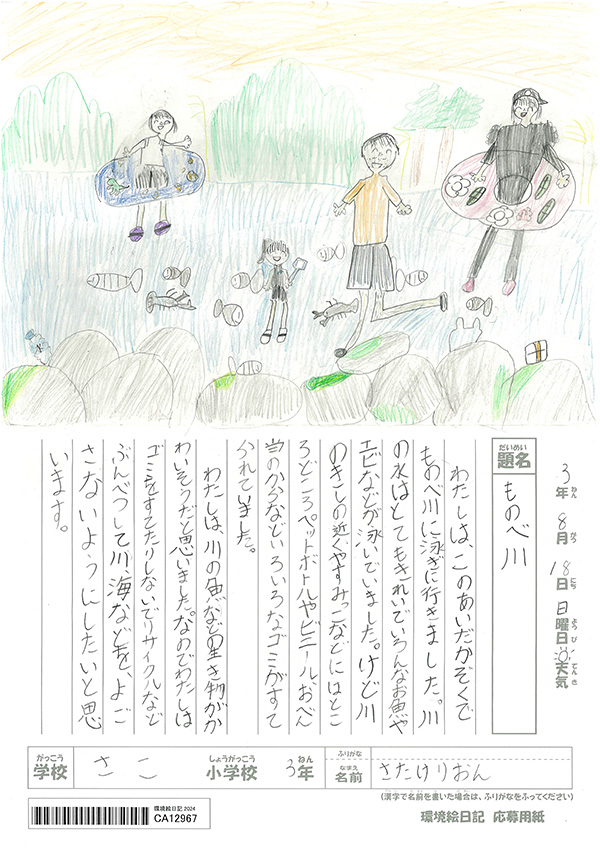 3年 8月 18日 日曜日 天気
ねん がつ にち ようび てんき
だいめい
題名
ものべ川
わたしは、このあいだかぞくで
ものべ川に泳ぎに行きました。川
の水はとてもきれいでいろんなお魚や
エビなどが泳いでいました。けど川
のきしの近くやすみっこなどにはとこ
ろどころペットボトルやビニール、おべん
当のからなどいろいろなゴミがすて
られていました。
わたしは、川の魚などの生き物がか
わいそうだと思いました。なのでわたしは
ゴミをすてたりしないでリサイクルなど
ぶんべつして川、海などを、よご
さないようにしたいと思
います。
がっこう しょうがっこう ねん
学校 さこ 小学校 3年
ふりがな
なまえ
名前 さたけりおん
(漢字で名前を書いた場合は、ふりがなをふってください)
環境絵日記 2024
CA12967
環境絵日記 応募用紙